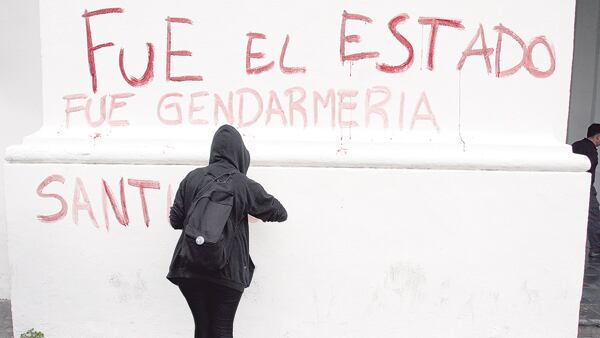 FUE EL ESTADO
FUE GENDARMERIA
SANTI